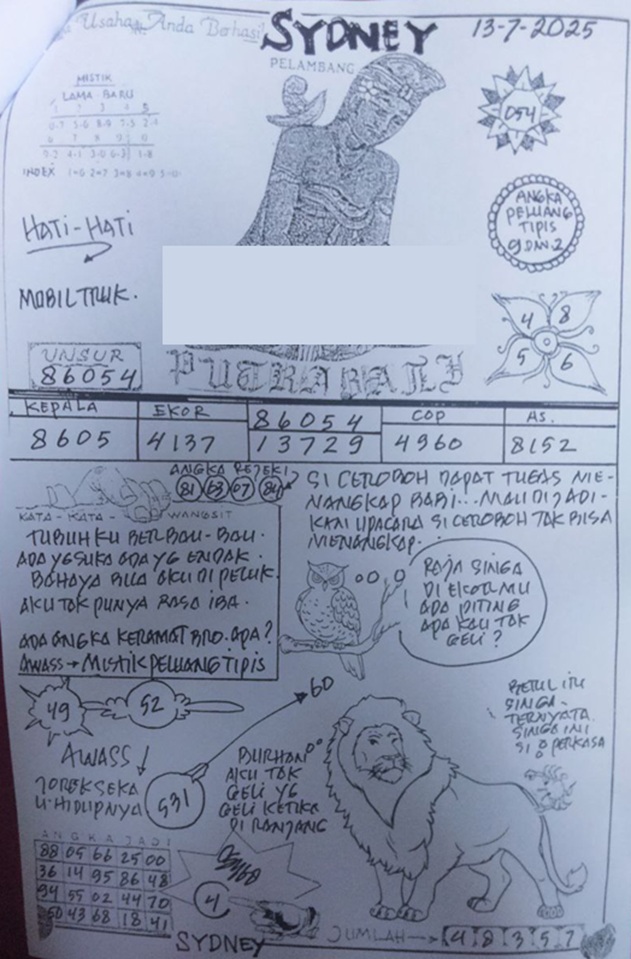 Usaha Anda Berhasil
SYDNEY
13-7-2025
PELAMBANG
MISTIK
LAMA BARU
INDEX 1=6 2=7 3=8 4=9 5=0
054
ANGKA
PELUANG
TIPIS
9 DAN 2
HATI-HATI
MOBIL TRUK.
4 8
5 6
UNSUR
86054
PUTRA BALI
KEPALA
EKOR
86054
COP
AS.
8605
4137
13729
4960
8152
ANGKA REJEKI
81 63 07 84
KATA - KATA - WANGSIT
TUBUHKU BERBAU-BAU.
ADA YG SUKA ADA YG ENDAK.
BAHAYA BILA AKU DI PELUK.
AKU TAK PUNYA RASA IBA.
ADA ANGKA KERAMAT BRO. APA?
AWASS → MISTIK PELUANG TIPIS
SI CEROBOH DAPAT TUGAS ME-
NANGKAP BABI... MAU DI JADI-
KAN UPACARA SI CEROBOH TAK BISA
MENANGKAP.
RAJA SINGA
DI EKORMU
ADA PITING
APA KAU TAK
GELI?
49
52
60
AWASS
531
JOREK SEKA
U. HIDUPNYA
BURHAN
AKU TAK
GELI YG
GELI KETIKA
DI RANJANG
BETUL ITU
SINGA-
TERNYATA
SINGA INI
SI PERKASA
ANGKA JADI
88 05 66 25 00
36 14 95 86 48
94 55 02 44 70
50 43 68 18 41
4
SYDNEY
JUMLAH → 4 8 3 5 7